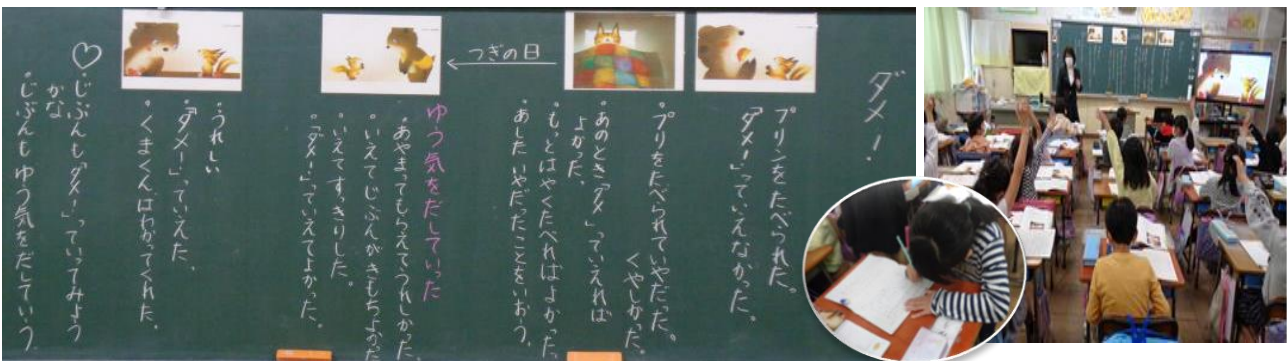 ダメ！
プリンをたべられた。
「ダメ！」っていえなかった。
プリをたべられていやだった。
くやしかった。
・あのとき「ダメ」っていえれば
よかった。
・もっとはやくたべればよかった。
・あしたいやだったことをいおう。
つぎの日
ゆう気をだしていった
・あやまってもらえてうれしかった。
・いえてじぶんがきもちよかった
・いえてすっきりした。
・「ダメ！」っていえてよかった。
・うれしい
・「ダメー！」っていえた。
・くまくんはわかってくれた。
♡・じぶんも「ダメ！」っていってみよう
かな
・じぶんもゆう気をだしていう。